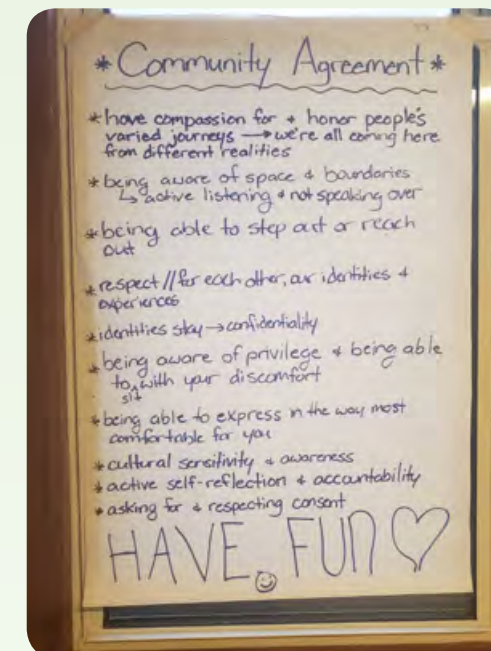 * Community Agreement *
* have compassion for + honor people's
varied journeys → we're all coming here
from different realities
* being aware of space & boundaries
↳ active listening + not speaking over
* being able to step out or reach
out
* respect // for each other, our identities +
experiences
* identities stay → confidentiality
* being aware of privilege + being able
to sit with your discomfort
* being able to express in the way most
comfortable for you
* cultural sensitivity + awareness
* active self-reflection + accountability
* asking for + respecting consent
HAVE FUN ♡